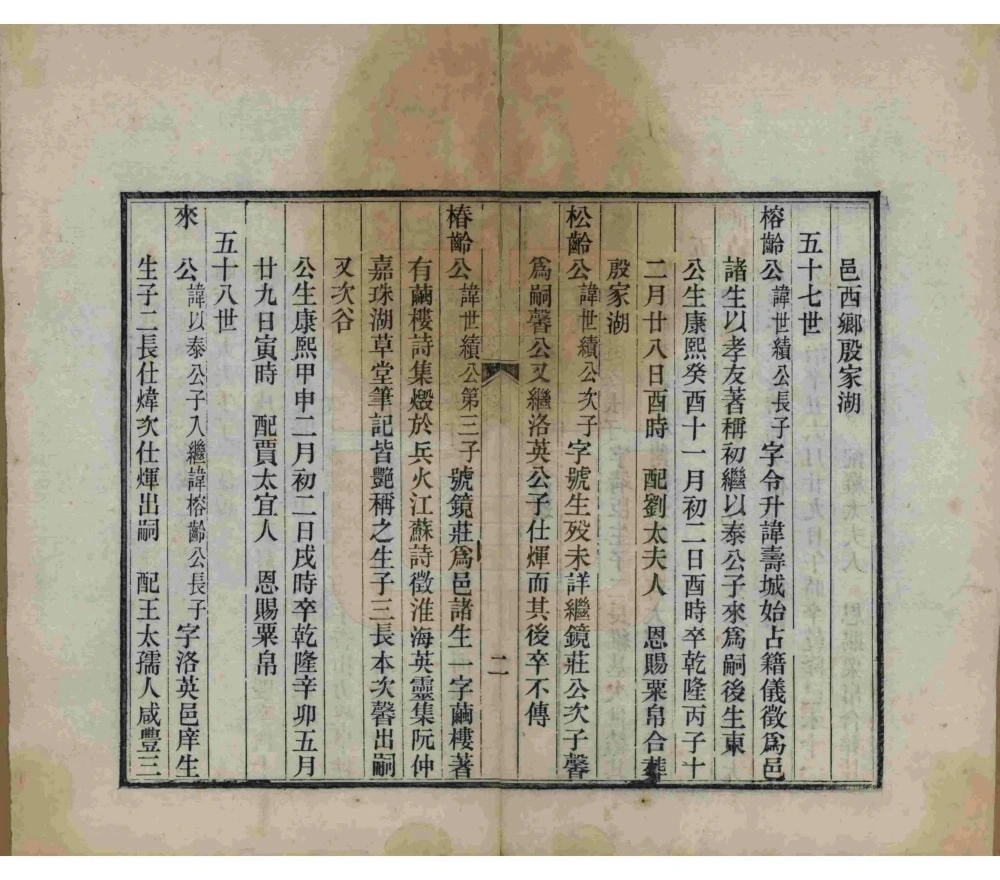 邑西鄉殷家湖
五十七世
榕齡公諱世績公長子字令升諱壽城始占籍儀徵爲邑
諸生以孝友著稱初繼以泰公子來爲嗣後生東
公生康熙癸酉十一月初二日酉時卒乾隆丙子十
二月廿八日酉時　配劉太夫人　恩賜粟帛合葬
殷家湖
松齡公諱世績公次子字號生歿未詳繼鏡莊公次子馨
爲嗣馨公又繼洛英公子仕煇而其後卒不傳
二
椿齡公諱世績公第三子號鏡莊爲邑諸生一字繭樓著
有繭樓詩集燬於兵火江蘇詩徵淮海英靈集阮仲
嘉珠湖草堂筆記皆艷稱之生子三長本次馨出嗣
又次谷
公生康熙甲申二月初二日戌時卒乾隆辛卯五月
廿九日寅時　配賈太宜人　恩賜粟帛
五十八世
來　公諱以泰公子入繼諱榕齡公長子字洛英邑庠生
生子二長仕煒次仕煇出嗣　配王太孺人咸豐三